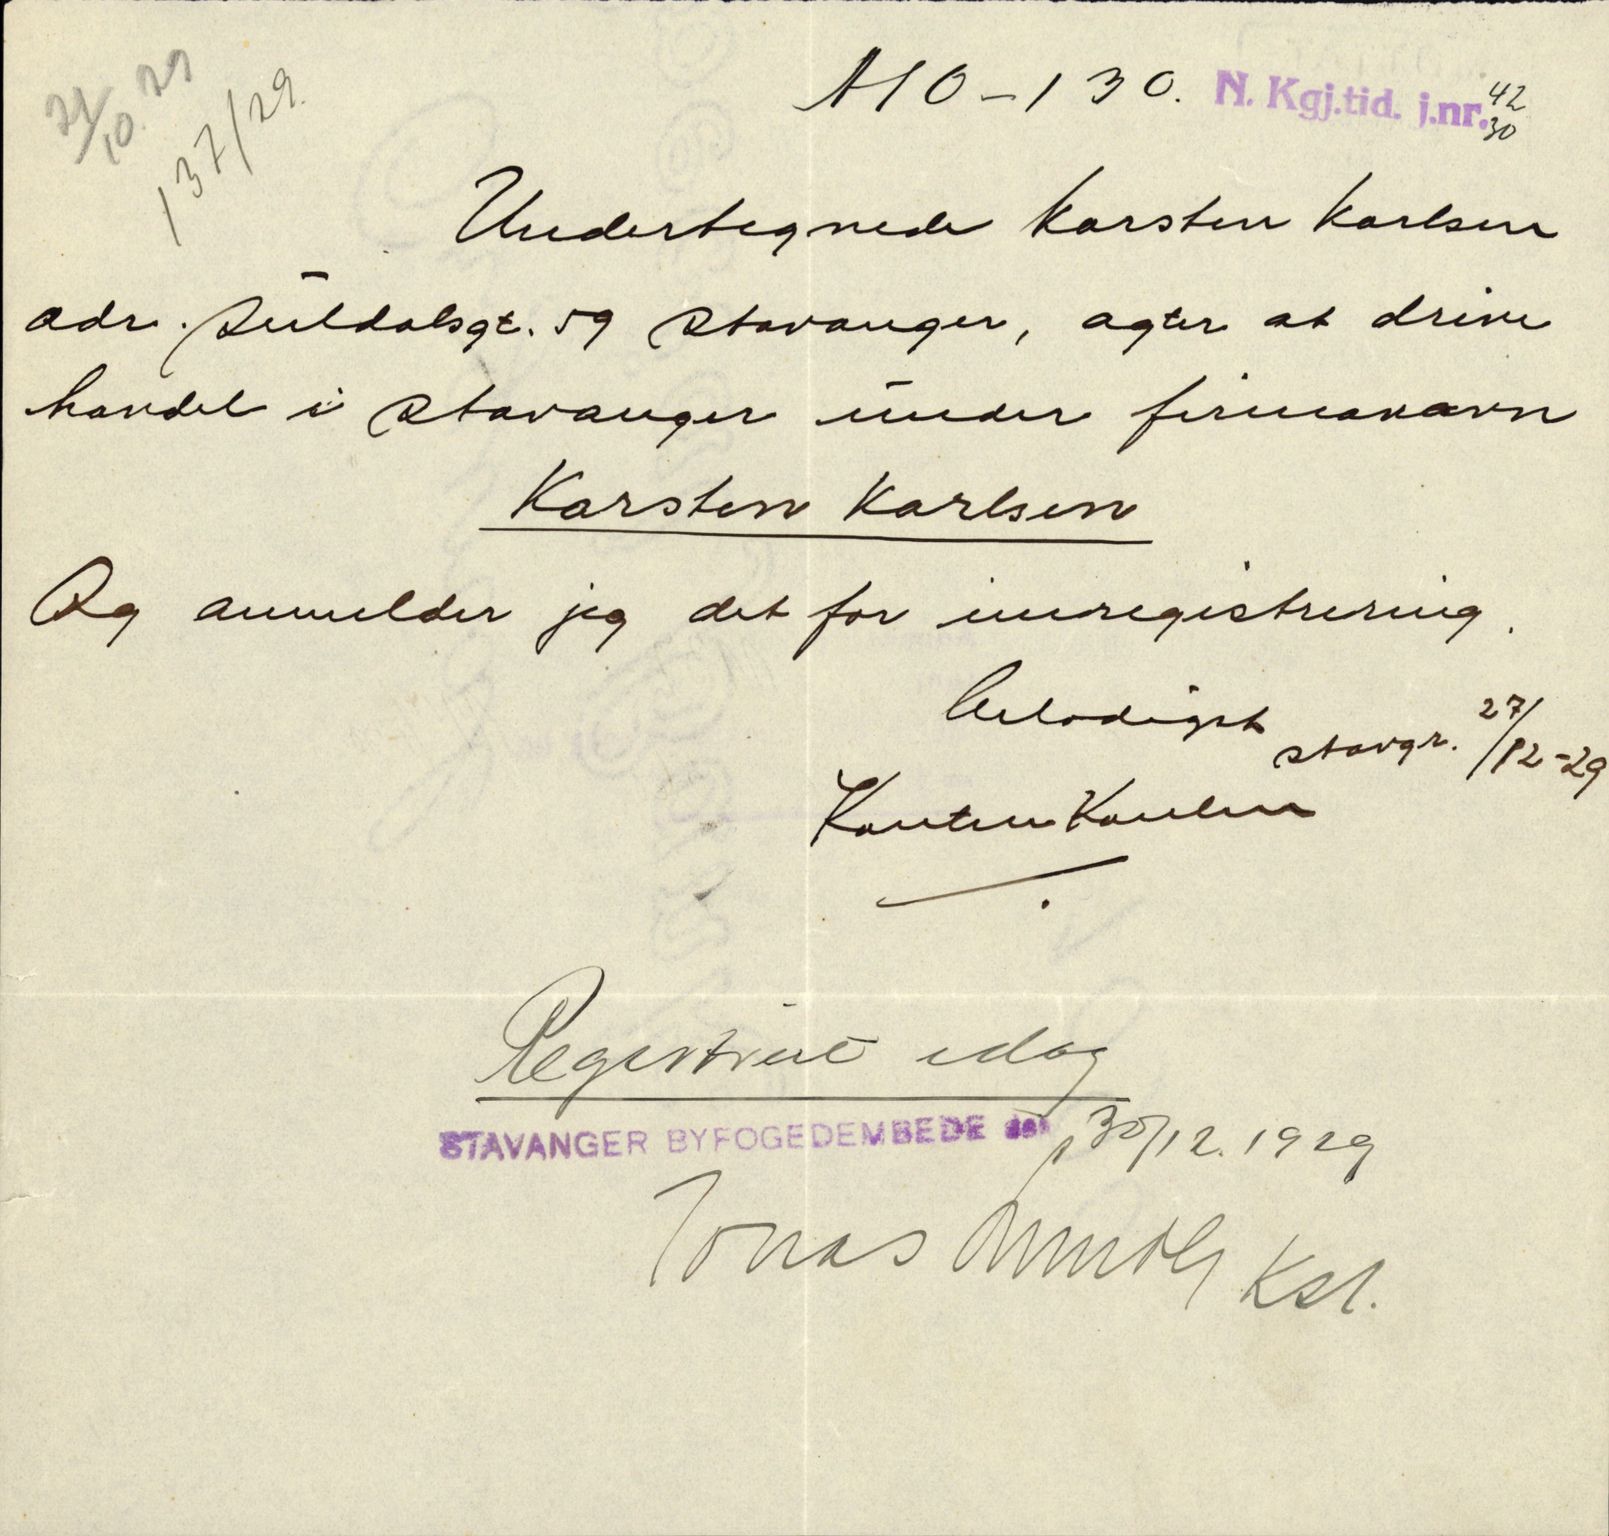 137/29.
A10-130. N. Kgj.tid. j.nr. 42/30
Undertegnede Karsten Karlsen
adr. Suldalsgt. 59 Stavanger, agter at drive
handel i Stavanger under firmanavn
Karsten Karlsen
Og anmelder jeg det for innregistrering.
Ærbødigst
Stavgr. 27/12-29
Karsten Karlsen
Registrert idag
STAVANGER BYFOGEDEMBEDE den 30/12. 1929
Jonas
Kst.